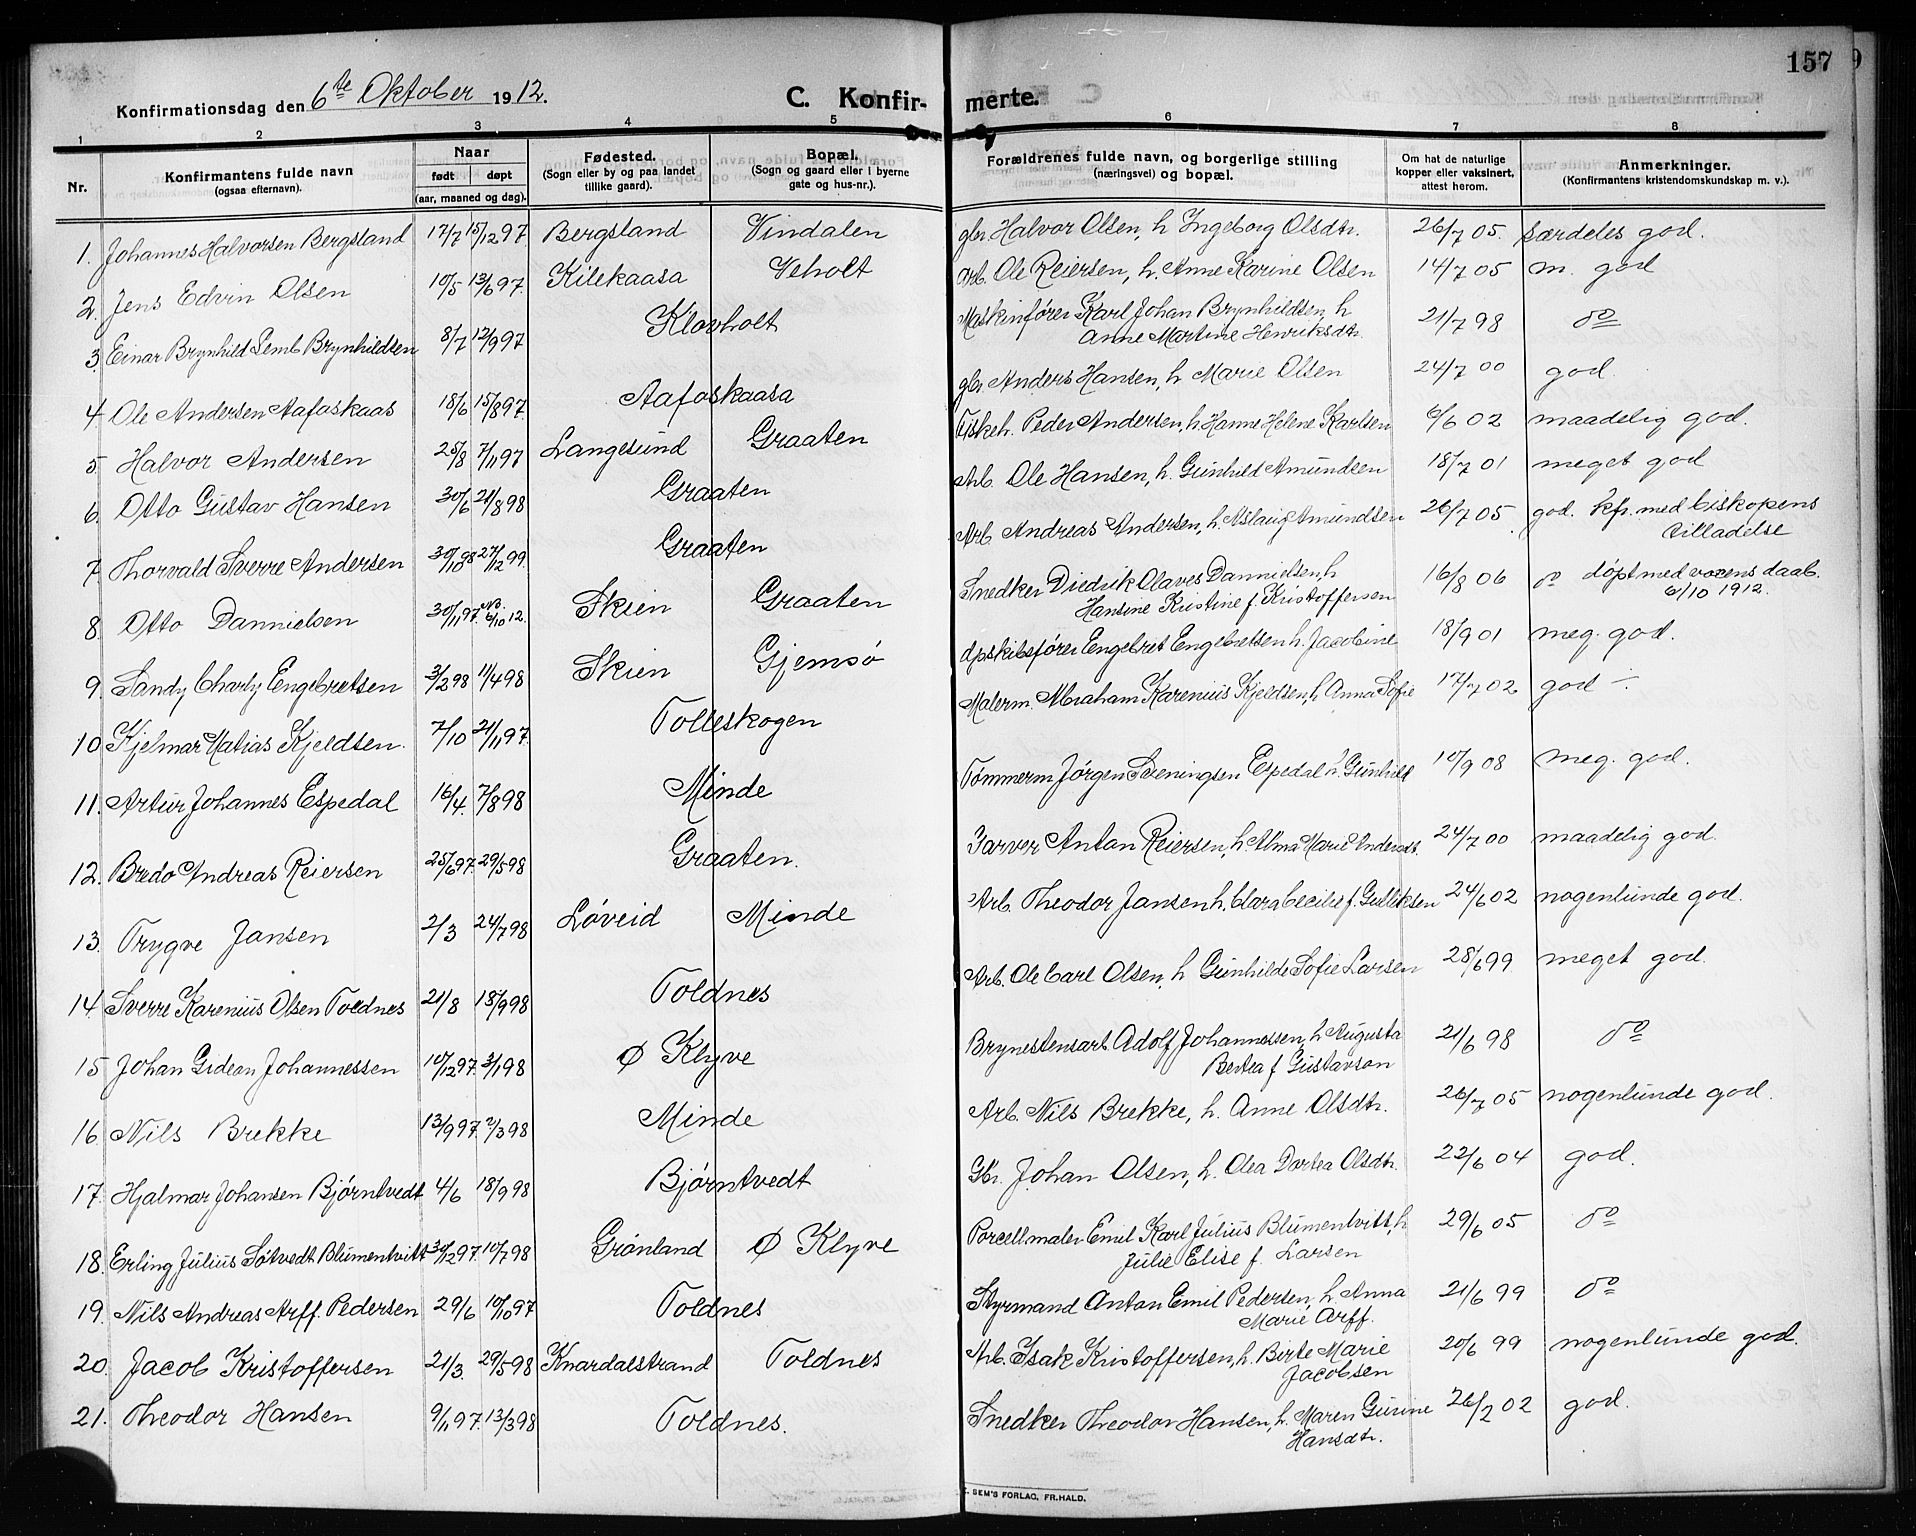 157
Konfirmationsdag den 6te Oktober 1912.
C. Konfir- merte.
1 2 3 4 5 6 7 8
Nr.
Konfirmantens fulde navn
(ogsaa efternavn).
Naar
født døpt
(aar, maaned og dag).
Fødested.
(Sogn eller by og paa landet
tillike gaard).
Bopæl.
(Sogn og gaard eller i byerne
gate og hus-nr.).
Forældrenes fulde navn, og borgerlige stilling
(næringsvei) og bopæl.
Om hat de naturlige
kopper eller vaksinert,
attest herom.
Anmerkninger.
(Konfirmantens kristendomskundskap m. v.).
1. Johannes Halvorsen Bergsland 17/7 15/12 97 Bergsland Vindalen gbr. Halvor Olsen, h Ingeborg Olsdtr. 26/7 05. særdeles god.
2. Jens Edvin Olsen 10/5 13/6 97. Kilekaasa Veholt Arb. Ole Reiersen, h. Anne Karine Olsen 14/7 05 m. god
3. Einar Brynhild Lemb Brynhildsen 8/7 12/9 97 Klovholt Maskinfører Karl Johan Brynhildsen, h
Anne Martine Henriksdtr. 21/7 98 do
4. Ole Andersen Aafoskaas 18/6 15/8 97. Aafoskaasa gbr. Anders Hansen, h Marie Olsen 24/7 00 god.
5. Halvor Andersen 25/8 7/11 97 Langesund Graaten Fiskeh. Peder Andersen, h Hanne Helene Karlsen 6/6 02 maadelig god.
6. Otto Gustav Hansen 30/6 21/8 98 Graaten Arb. Ole Hansen, h. Gunhild Amundsen 18/7 01 meget god
7. Thorvald Sverre Andersen 30/10 98 27/12 99 Graaten Arb. Andreas Andersen, h. Aslaug Amundsen 26/7 05 god. kfr. med biskopens
tilladelse
8. Otto Dannielsen 30/11 97. NB. 6/10 12. Skien Graaten Snedker Diedrik Olaves Dannielsen, h
Hansine Kristine f. Kristoffersen 16/8 06 do døpt med voxens daab.
6/10 1912.
9. Sandy Charly Engebretsen 3/2 98 11/4 98 Skien Gjemsø dpskibsfører Engebret Engebretsen h. Jacobine 18/9 01 meg. god.
10. Kjelmar Matias Kjeldsen. 7/10 21/11 97. Tolleskogen Malerm. Abraham Karenius Kjeldsen, h Anna Sofie 17/7 02 god
11. Artur Johannes Espedal 16/4. 7/8 98 Minde Tømmerm Jørgen Sveningsen Espedal h. Gunhild 10/9 08 meg. god.
12. Bredo Andreas Reiersen 25/6 97. 29/5 98 Graaten. Garver Antan Reiersen, h. Alma Marie Andersdt. 24/7 00 maadelig god.
13. Trygve Jansen 2/3 24/7 98 Løveid Minde Arb. Theodor Jansen h. Clara Cecilie f. Gulliksen 24/6 02 nogenlunde god.
14. Sverre Karenius Olsen Toldnes 21/8 18/9 98 Toldnes Arb. Ole Carl Olsen, h Gunhilde Sofie Larsen 28/6 99 meget god.
15 Johan Gidean Johannessen 10/12 97. 3/1 98 Ø Klyve Brynestensarb. Adolf Johannessen, h Augusta
Bertea f Gustavson 21/6 98 do
16. Nils Brekke 13/9 97. 2/3 98 Minde Arb. Nils Brekke, h. Anne Olsdtr. 26/7 05 nogenlunde god.
17. Hjalmar Johansen Bjørntvedt 4/6 18/9 98 Bjørntvedt Gbr. Johan Olsen, h. Olea Dortea Olsdtr. 22/6 04 god.
18. Erling Julius Søtvedt Blumentvitt 30/12 97. 10/7 98 Grønland Ø Klyve Porcellmaler Emil Karl Julius Blumentvitt, h
Julie Elise f. Larsen 29/6 05 do
19. Nils Andreas Arff. Pedersen 29/6 10/10 97 Toldnes Styrmand Antan Emil Pedersen, h Anna
Marie Arff. 21/6 99 do
20. Jacob Kristoffersen 21/3. 29/5 98 Knardalstrand Toldnes Arb. Isak Kristoffersen, h. Birte Marie
Jacobsen 20/6 99 nogenlunde god.
21. Theodor Hansen 9/11 97. 13/3 98 Toldnes. Snedker Theodor Hansen, h. Maren Gurine
Hansdtr. 26/2 02 god.
SEM'S FORLAG, FR.HALD.